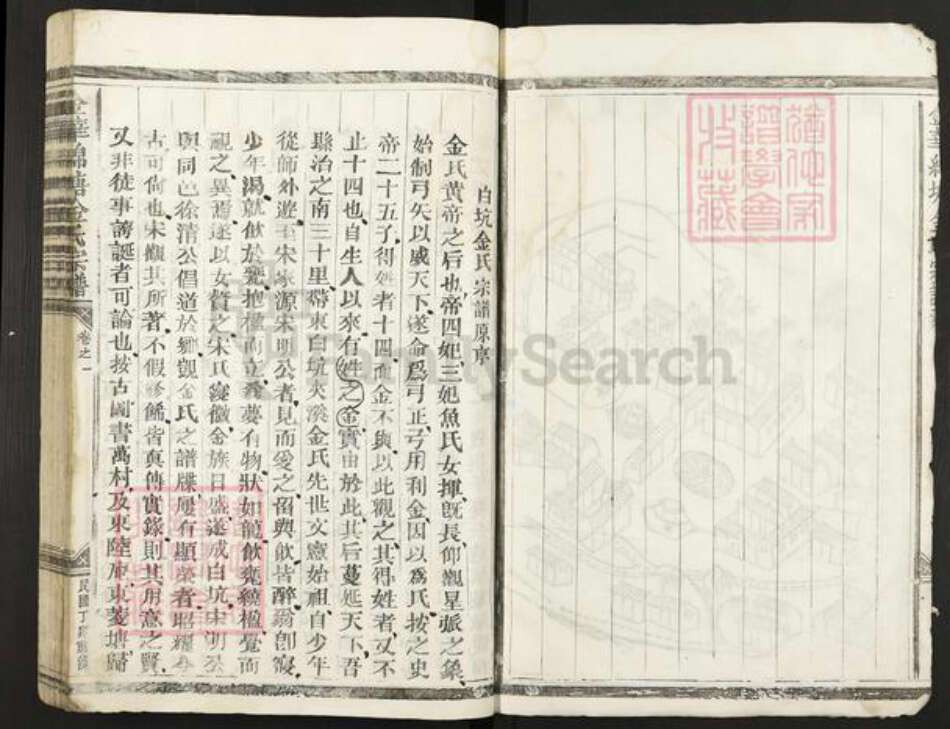 白坑金氏宗譜原序
金氏黃帝之后也帝四妃三妃魚氏女揮旣長仰觀星弧之象
始制弓矢以威天下遂命爲弓正弓用利金因以爲氏按之史
帝二十五子得姓者十四而金不與以此觀之其得姓者又不
止十四也自生人以來有姓之金實由於此其后蔓延天下吾
縣治之南三十里許東白坑夾溪金氏先世文憲始祖自少年
從師外遊至宋家源宋明公者見而愛之留與飲皆醉翁卽寢
少年渴就飲於甕抱楹而立翁夢有物狀如龍飲甕繞楹覺而
視之異焉遂以女贅之宋氏寖微金族日盛遂成白坑宋明公
與同邑徐清公倡道於鄉觀金氏之譜牒屢有顯榮者昭耀
古可尚也宋觀其所著不假修餙皆真傳實錄則其用意之賢
又非徒事誇誕者可論也按古圖書萬村及東陸厚東菱塘歸
金華錦𡎚金氏宗譜
卷之一
譜學會
收藏
FamilySearch